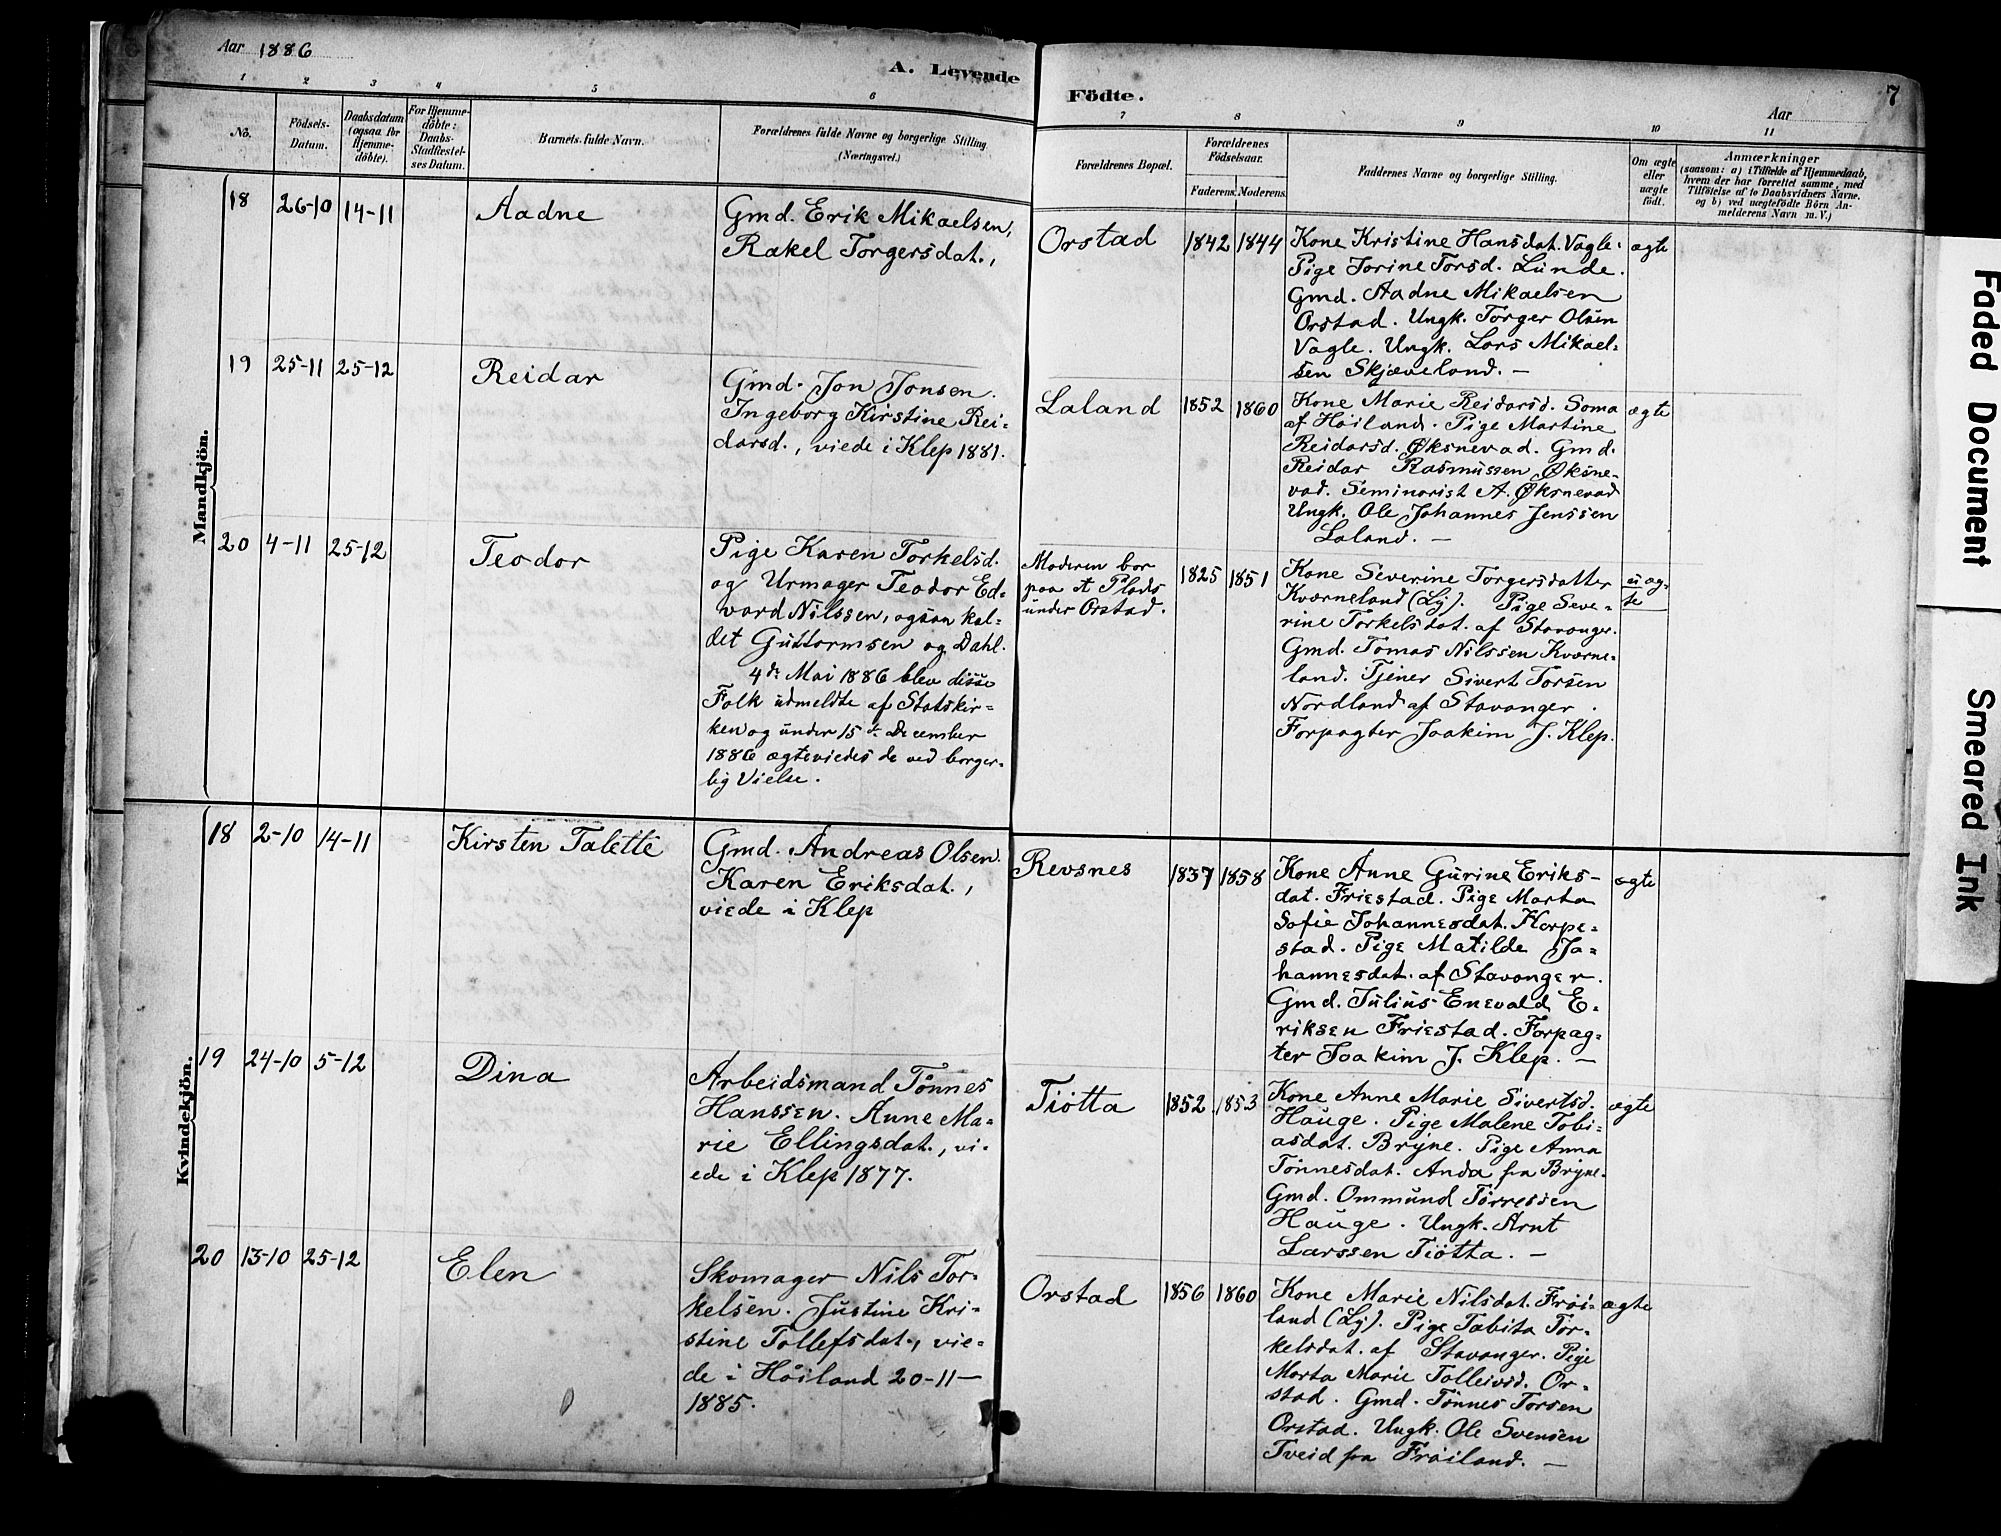 Aar 1886
A. Levende
1 2 3 4 5 6
No.
Födsels-
Datum.
Daabsdatum
(ogsaa for
Hjemme-
döbte).
For Hjemme-
döbte:
Daabs-
Stadfæstel-
ses Datum.
Barnets fulde Navn.
Forældrenes fulde Navne og borgerlige Stilling
(Næringsvei.)
Mandkjön.
18 26-10 14-11 Aadne
Gmd. Erik Mikaelsen,
Rakel Torgersdat.,
19 25-11 25-12 Reidar
Gmd. Jon Jonsen.
Ingeborg Kirstine Rei=
darsd., viede i Klep 1881.
20 4-11 25-12 Teodor
Pige Karen Torkelsd.
og Urmager Teodor Ed=
vard Nilssen, ogsaa kal=
det Guttormsen og Dahl.
4de Mai 1886 blev disse
Folk udmeldte af Statskir=
ken og under 15de December
1886 ægteviedes de ved borger=
lig Vielse.
Kvindekjön.
18 2-10 14-11 Kirsten Talette
Gmd. Andreas Olsen.
Karen Eriksdat.,
viede i Klep
19 24-10 5-12 Dina
Arbeidsmand Tönnes
Hanssen. Anne Ma=
rie Ellingsdat., vi=
ede i Klep 1877.
20 13-10 25-12 Elen
Skomager Nils Tor=
kelsen. Justine Kri=
stine Tollefsdat., vie=
de i Höiland 20-11-
1885.
Födte.
Aar
7
7 8 9 10 11
Forældrenes Bopæl.
Forældrenes
Födselsaar.
Faderens. Moderens.
Faddernes Navne og borgerlige Stilling.
Om ægte
eller
uægte
födt.
Anmærkninger
(saasom: a) i Tilfælde af Hjemmedaab,
hvem der har forrettet samme, med
Tilföielse af to Daabsvidners Navne,
og b) ved uægtefödte Börn An-
melderens Navn m. V.)
Orstad 1842 1844
Kone Kristine Hansdat. Vagle.
Pige Jorine Torsd. Lunde.
Gmd. Aadne Mikaelsen
Orstad. Ungk. Torger Olsen
Vagle. Ungk. Lars Mikael=
sen Skjæveland. —
ægte
Laland 1852 1860
Kone Marie Reidarsd. Soma
af Höiland. Pige Martine
Reidarsd. Øksnevad. Gmd.
Reidar Rasmussen Øksne-
vad. Seminarist A. Øksnevad
Ungk. Ole Johannes Jenssen
Laland. —
ægte
Moderen bor
paa et Plads
under Orstad.
1825 1851
Kone Severine Torgersdatter
Kværneland (Ly). Pige Seve=
rine Torkelsdat. af Stavanger.
Gmd. Tomas Nilssen Kværne=
land. Tjener Sivert Torsen
Nordland af Stavanger.
Forpagter Joakim J. Klep.
uæg-
te
Revsnes 1837 1858
Kone Anne Gurine Eriks-
dat. Friestad. Pige Marta
Sofie Johannesdat. Horpe=
stad. Pige Matilde Jo=
hannesdat. af Stavanger.
Gmd. Julius Enevald E=
riksen Friestad. Forpag=
ter Joakim J. Klep. —
ægte
Tiötta 1852 1853
Kone Anne Marie Sivertsd.
Hauge. Pige Malene Tobi=
asdat. Bryne. Pige Anna
Tönnesdat. Anda fra Bryne.
Gmd. Ommund Törressen
Hauge. Ungk. Arnt
Larssen Tiötta. —
ægte
Orstad 1856 1860
Kone Marie Nilsdat. Fröi=
land (Ly). Pige Tabita Tor=
kelsdat. af Stavanger. Pige
Marta Marie Tolleivsd. Or=
stad. Gmd. Tönnes Torsen
Orstad. Ungk. Ole Svensen
Tveid fra Fröiland. —
ægte
Faded Document
Smeared Ink